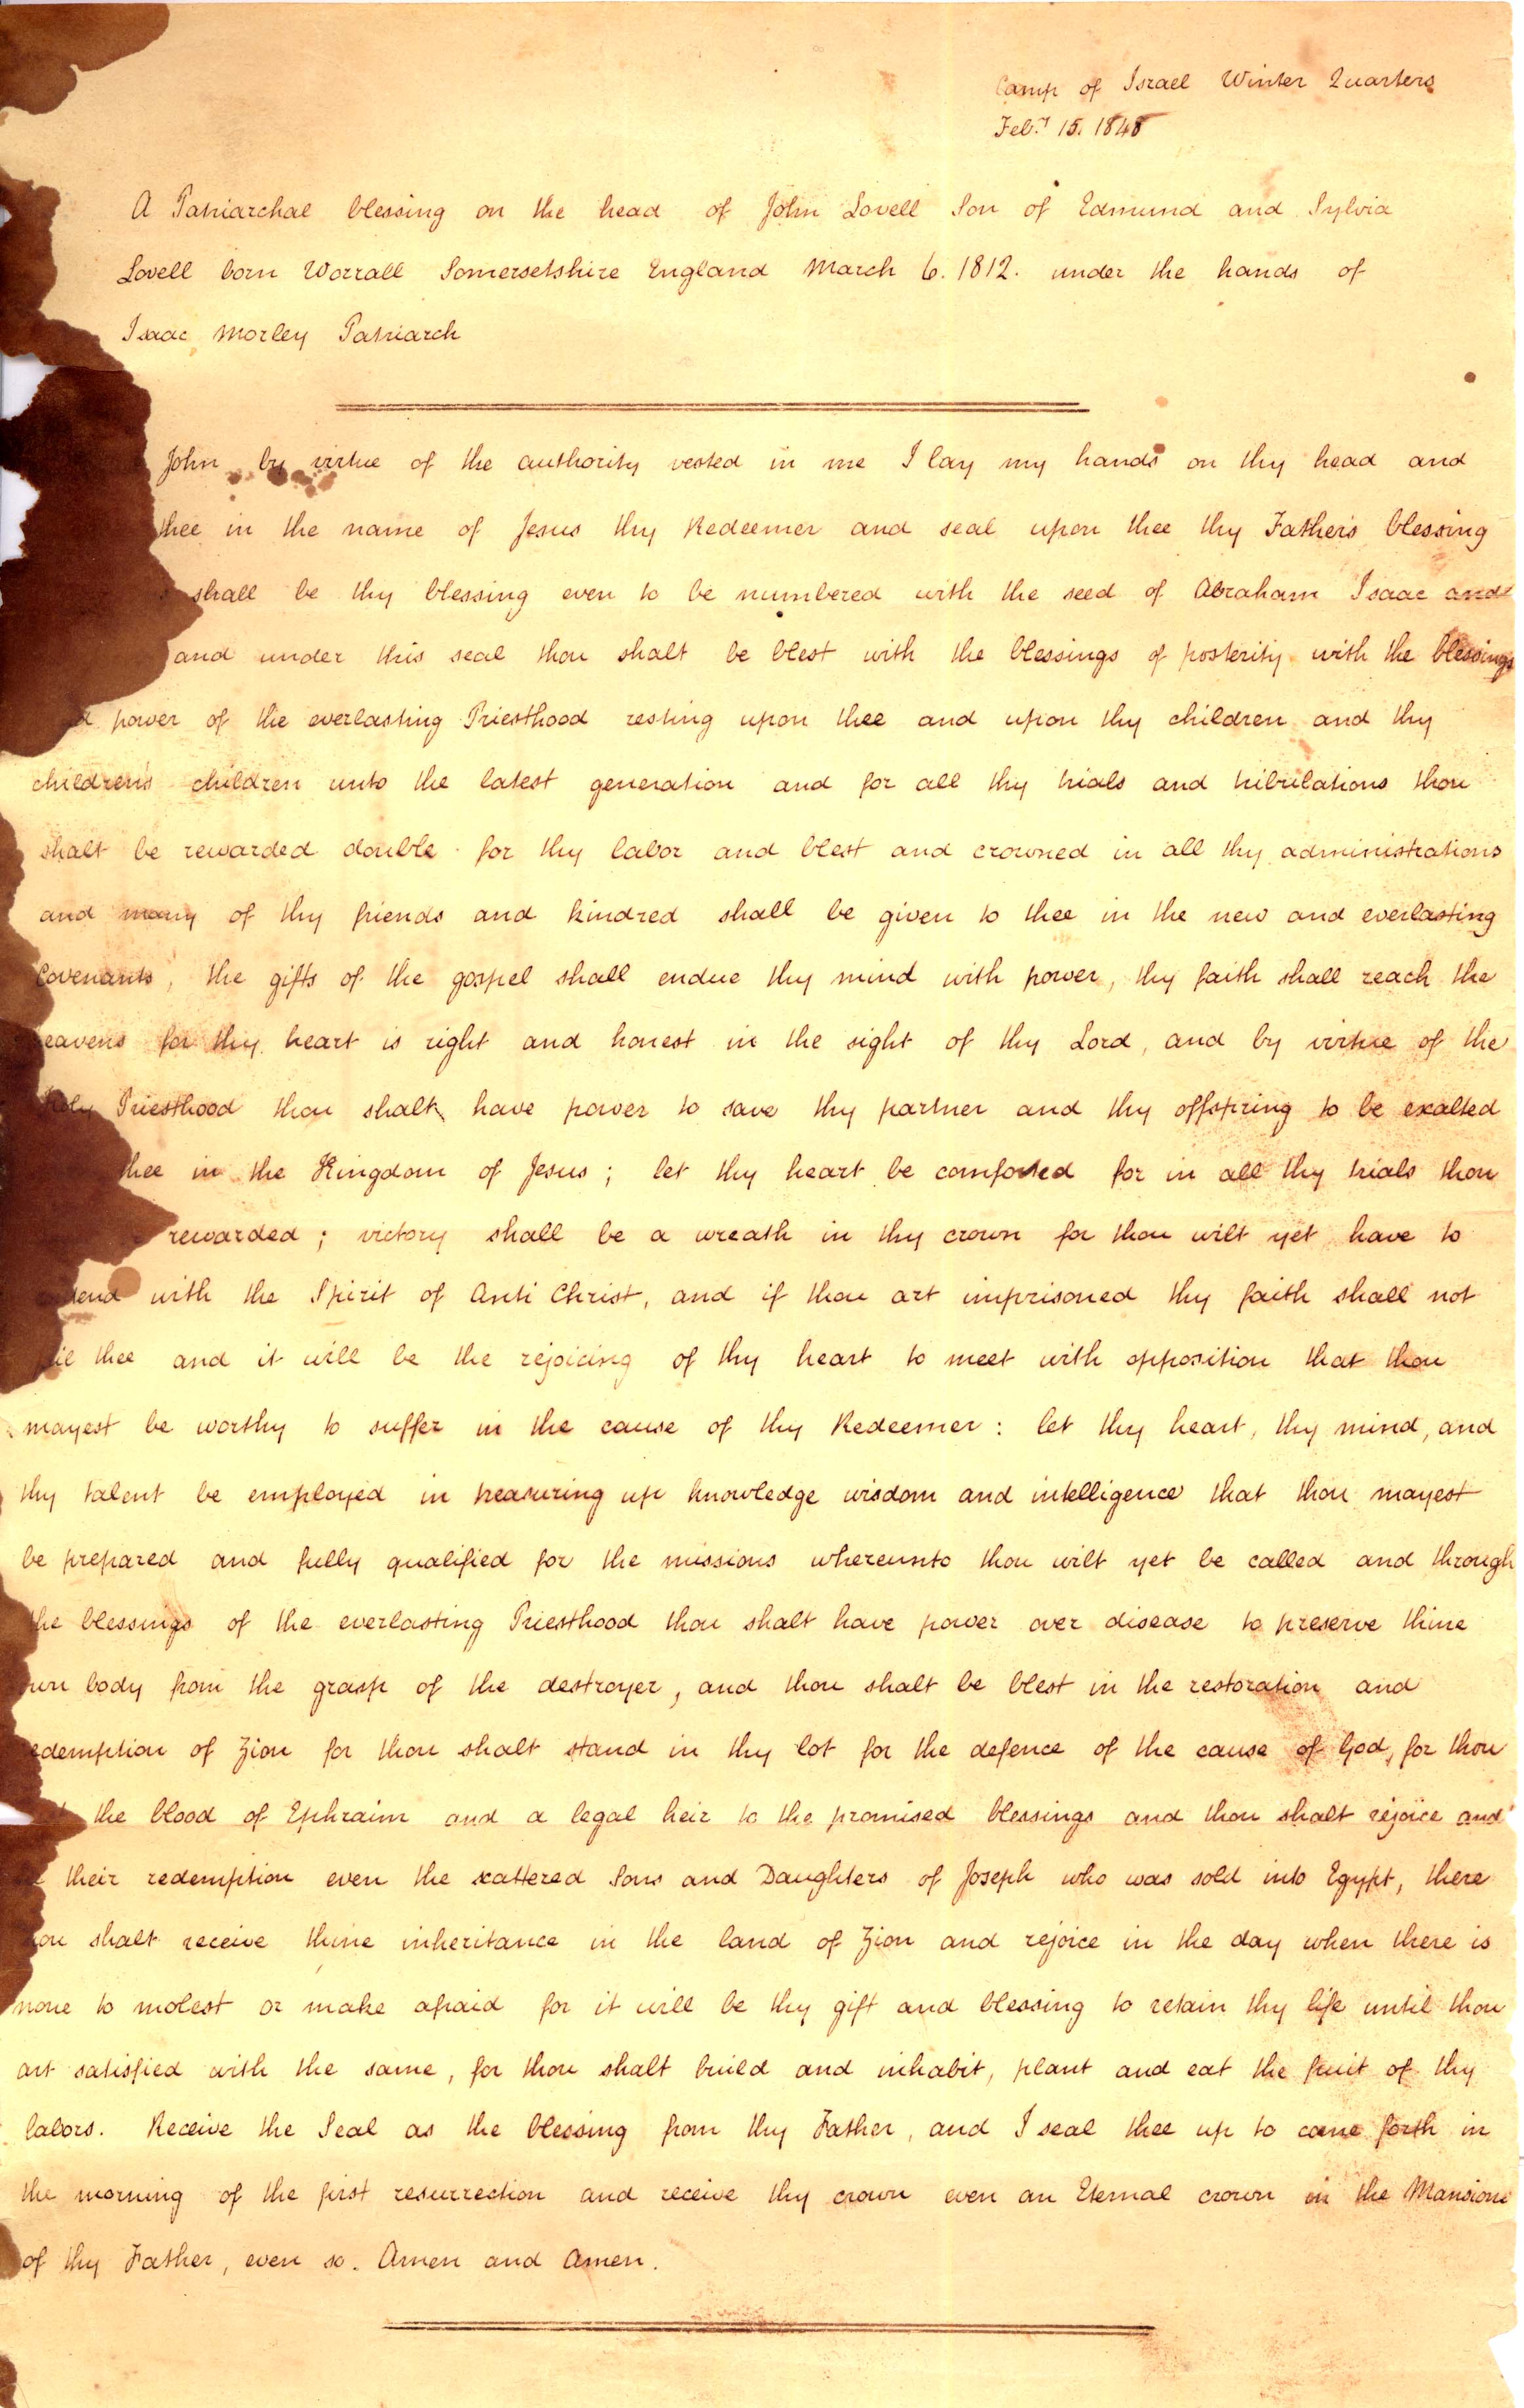 Camp of Israel Winter Quarters
Feby 15. 1848
A Patriarchal blessing on the head of John Lovell Son of Edmund and Sylvia
Lovell born Worrall Somersetshire England March 6. 1812. under the hands of
Isaac Morley Patriarch
John by virtue of the authority vested in me I lay my hands on thy head and
thee in the name of Jesus thy Redeemer and seal upon thee thy Father's blessing
shall be thy blessing even to be numbered with the seed of Abraham Isaac and
and under this seal thou shalt be blest with the blessings of posterity with the blessings
power of the everlasting Priesthood resting upon thee and upon thy children and thy
children's children unto the latest generation and for all thy trials and tribulations thou
shalt be rewarded double for thy labor and blest and crowned in all thy administrations
and many of thy friends and kindred shall be given to thee in the new and everlasting
Covenants, the gifts of the gospel shall endue thy mind with power, thy faith shall reach the
eavens for thy heart is right and honest in the sight of thy Lord, and by virtue of the
Holy Priesthood thou shalt have power to save thy partner and thy offspring to be exalted
thee in the Kingdom of Jesus; let thy heart be comforted for in all thy trials thou
rewarded; victory shall be a wreath in thy crown for thou wilt yet have to
tend with the Spirit of Anti Christ, and if thou art imprisoned thy faith shall not
fail thee and it will be the rejoicing of thy heart to meet with opposition that thou
mayest be worthy to suffer in the cause of thy Redeemer: let thy heart, thy mind, and
thy talent be employed in treasuring up knowledge wisdom and intelligence that thou mayest
be prepared and fully qualified for the missions whereunto thou wilt yet be called and through
the blessings of the everlasting Priesthood thou shalt have power over disease to preserve thine
own body from the grasp of the destroyer, and thou shalt be blest in the restoration and
edemption of Zion for thou shalt stand in thy lot for the defence of the cause of God, for thou
the blood of Ephraim and a legal heir to the promised blessings and thou shalt rejoice and
their redemption even the scattered Sons and Daughters of Joseph who was sold into Egypt, there
ou shalt receive thine inheritance in the land of Zion and rejoice in the day when there is
none to molest or make afraid for it will be thy gift and blessing to retain thy life until thou
art satisfied with the same, for thou shalt build and inhabit, plant and eat the fruit of thy
labors. Receive the Seal as the blessing from thy Father, and I seal thee up to come forth in
the morning of the first resurrection and receive thy crown even an Eternal crown in the Mansions
of thy Father, even so. Amen and Amen.